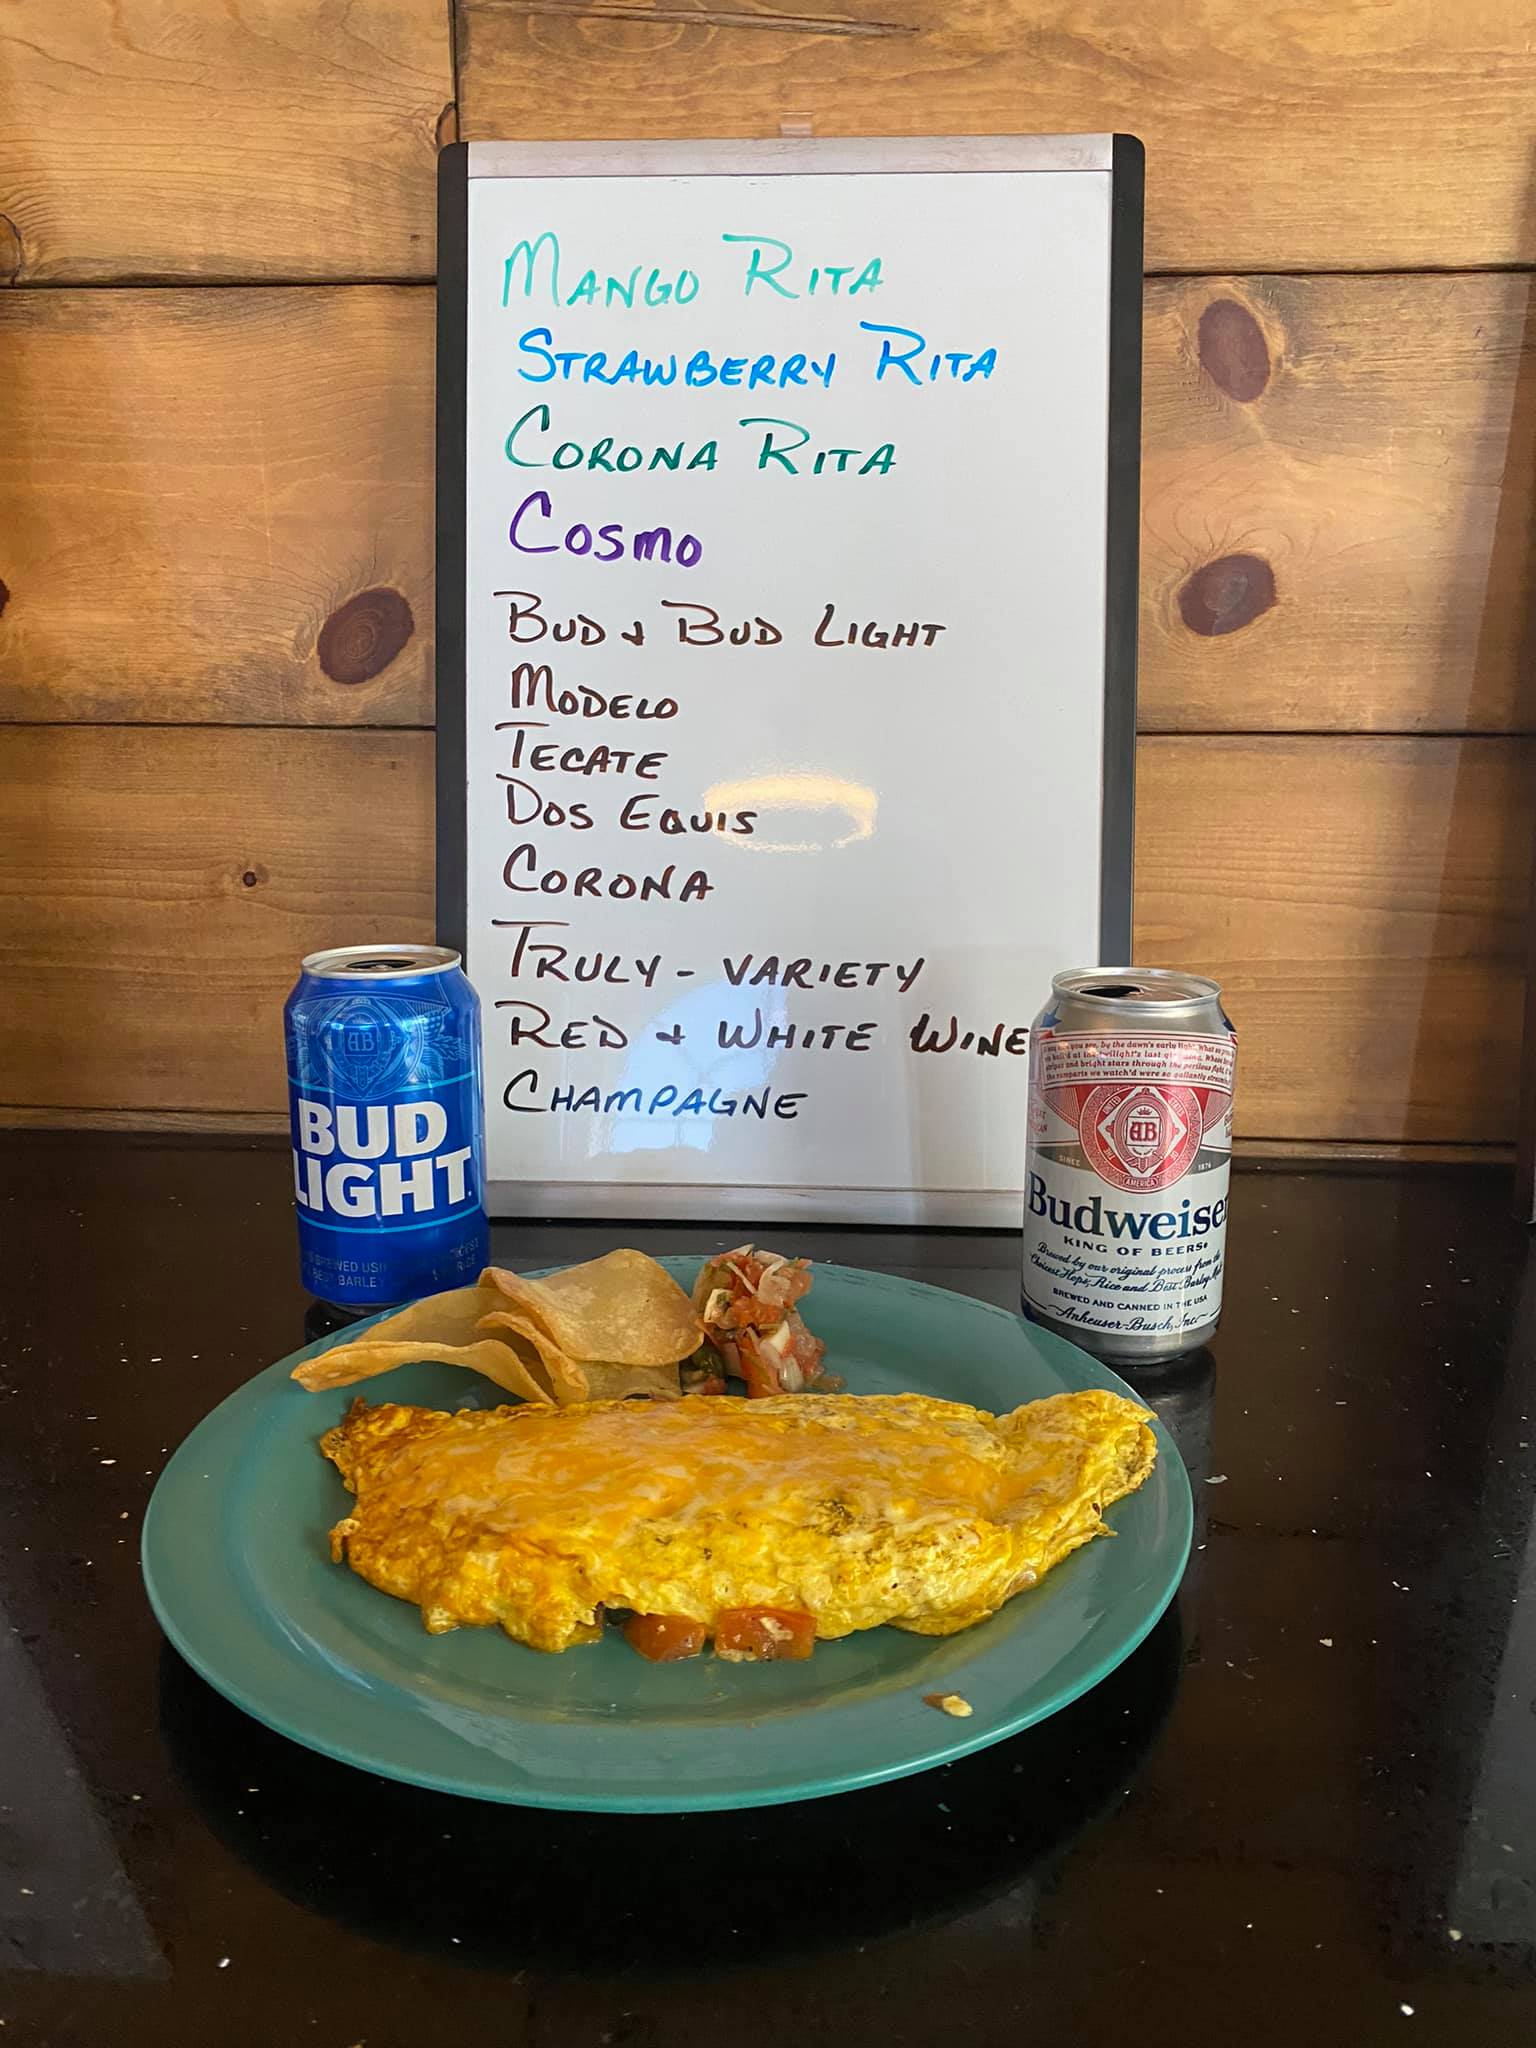 MANGO RITA
STRAWBERRY RITA
CORONA RITA
COSMO
BUD & BUD LIGHT
MODELO
TECATE
DOS EQUIS
CORONA
TRULY - VARIETY
RED & WHITE WINE
CHAMPAGNE
AB
BUD
LIGHT
BREWED USI
BEST BARLEY
RICE
you see, by the dawn's early light What so
at the twilight's last
and bright stars through the perilous fight,
the ramparts we watch'd were so gallantly
AB
SINCE 1876
AMERICA
Budweiser
KING OF BEERS
Brewed by our original process from the
Choicest Hops, Rice and Best Barley
BREWED AND CANNED IN THE USA
Anheuser-Busch, Inc